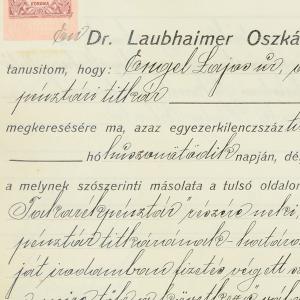 KORONA
Én Dr. Laubhaimer Oszká
tanusitom, hogy: Engel Lajos úr, a
pénztári titkár
megkeresésére ma, azaz egyezerkilencszáz ti
hó huszonötödik napján, dé
a melynek szószerinti másolata a tulsó oldalon
Takarékpénztár" részére neki
pénztár titkárának - határo
ját irodamban fizetés végett